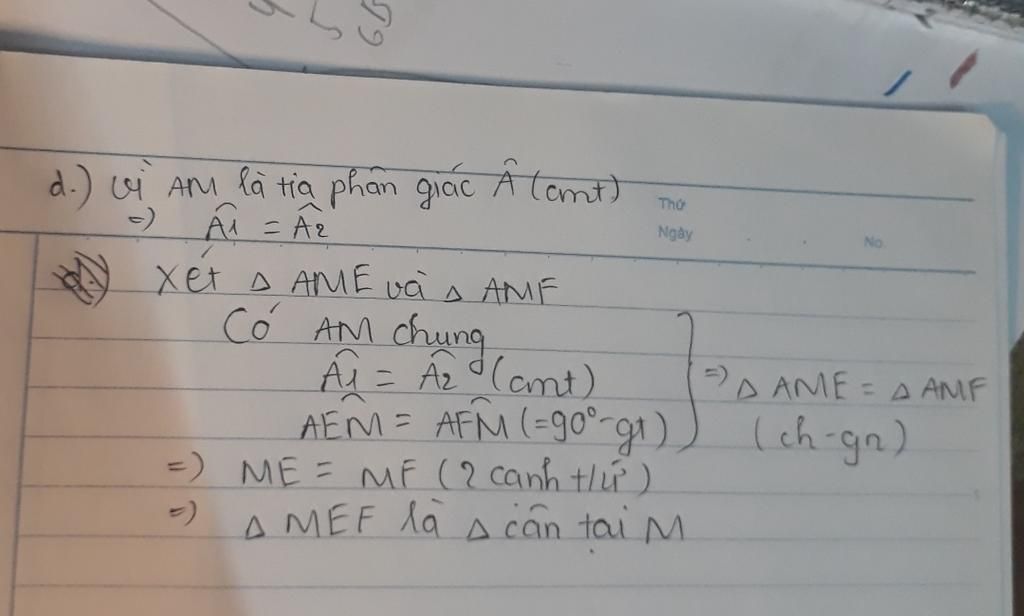 d.) Vì AM là tia phân giác Â (cmt)
=) Â1 = Â2
Thứ
Ngày
No.
Xét △ AME và △ AMF
Có AM chung
Â1 = Â2 (cmt)
AÊM = AF̂M (=90°-gt)
=) △ AME = △ AMF
(ch-gn)
=) ME = MF (2 cạnh t/ứ)
=) △ MEF là △ cân tại M